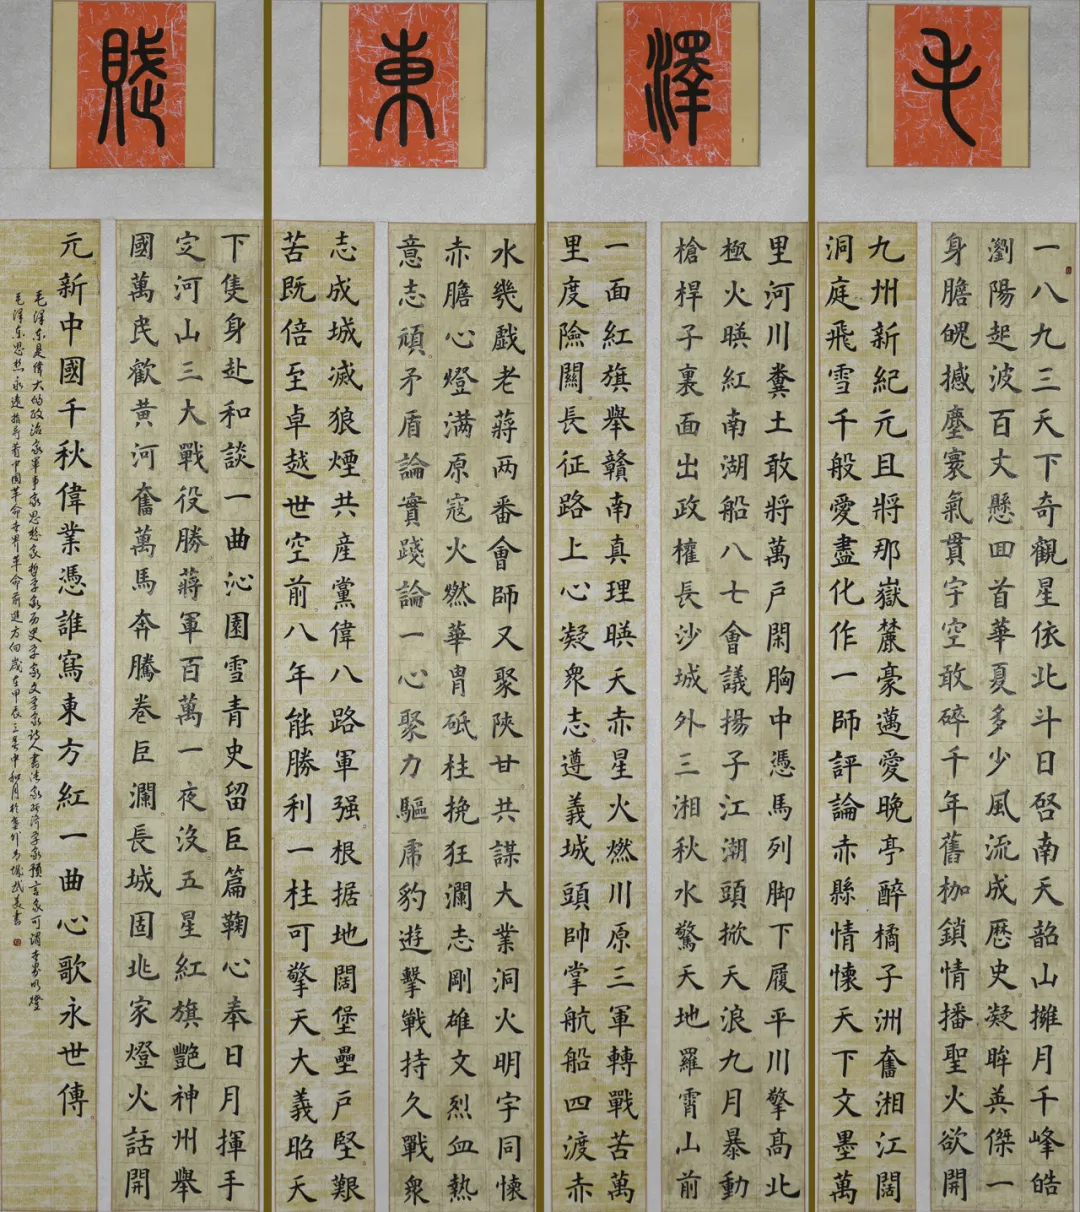 毛澤東賦
一八九三天下奇觀星依北斗日啓南天韶山擁月千峰皓
瀏陽起波百丈懸回首華夏多少風流成歷史凝眸英傑一
身膽魄撼塵寰氣貫宇空敢碎千年舊枷鎖情播聖火欲開
九州新紀元且將那嶽麓豪邁愛晚亭醉橘子洲奮湘江闊
洞庭飛雪千般愛盡化作一師評論赤縣情懷天下文墨萬
里河川糞土敢將萬戶閑胸中憑馬列脚下履平川擎高北
極火暎紅南湖船八七會議揚子江潮頭掀天浪九月暴動
槍桿子裏面出政權長沙城外三湘秋水驚天地羅霄山前
一面紅旗舉贛南真理暎天赤星火燃川原三軍轉戰苦萬
里度險關長征路上心凝衆志遵義城頭帥掌航船四渡赤
水幾戲老蔣两番會師又聚陝甘共謀大業洞火明宇同懷
赤膽心燈满原寇火燃華胄砥柱挽狂瀾志剛雄文烈血熱
意志頑矛盾論實踐論一心聚力驅虎豹遊擊戰持久戰衆
志成城滅狼煙共産黨偉八路軍强根据地闊堡壘戶堅艱
苦既倍至卓越世空前八年能勝利一柱可擎天大義昭天
下隻身赴和談一曲沁園雪青史留巨篇鞠心奉日月揮手
定河山三大戰役勝蔣軍百萬一夜没五星紅旗艷神州舉
國萬民歡黄河奮萬馬奔騰卷巨瀾長城固兆家燈火話開
元新中國千秋偉業憑誰寫東方紅一曲心歌永世傳
毛澤东是偉大的政治家軍事家思想家哲学家历史学家文学家诗人書法家经济学家預言家可謂世界明燈
毛澤东思想永遠指导着中国革命世界革命前進方向歲在甲辰